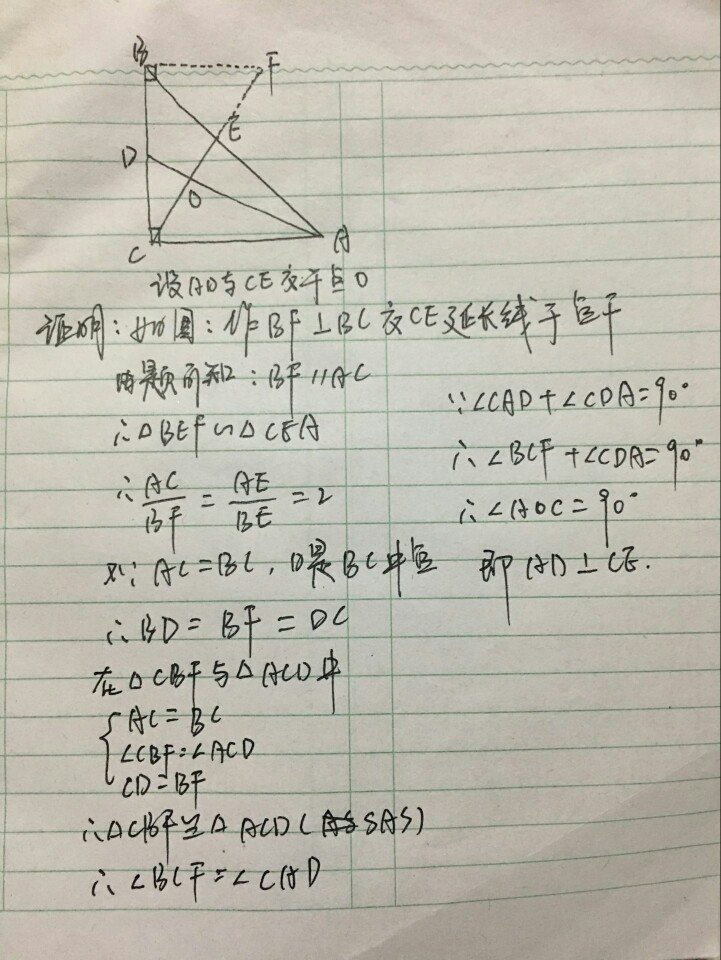 B
F
E
D
O
C
A
设AD与CE交于点O
证明:如图:作BF⊥BC交CE延长线于点F
由题可知:BF//AC
∴△BEF∽△CEA
∴AC/BF=AE/BE=2
又∵AC=BC,D是BC中点
∴BD=BF=DC
在△CBF与△ACD中
AC=BC
∠CBF=∠ACD
CD=BF
∴△CBF≌△ACD(SAS)
∴∠BCF=∠CAD
∵∠CAD+∠CDA=90°
∴∠BCF+∠CDA=90°
∴∠AOC=90°
即AD⊥CE.